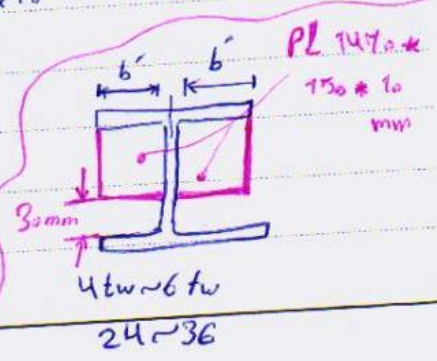 b' b'
PL 1470*
150*10
mm
30mm
4tw~6tw
24~36